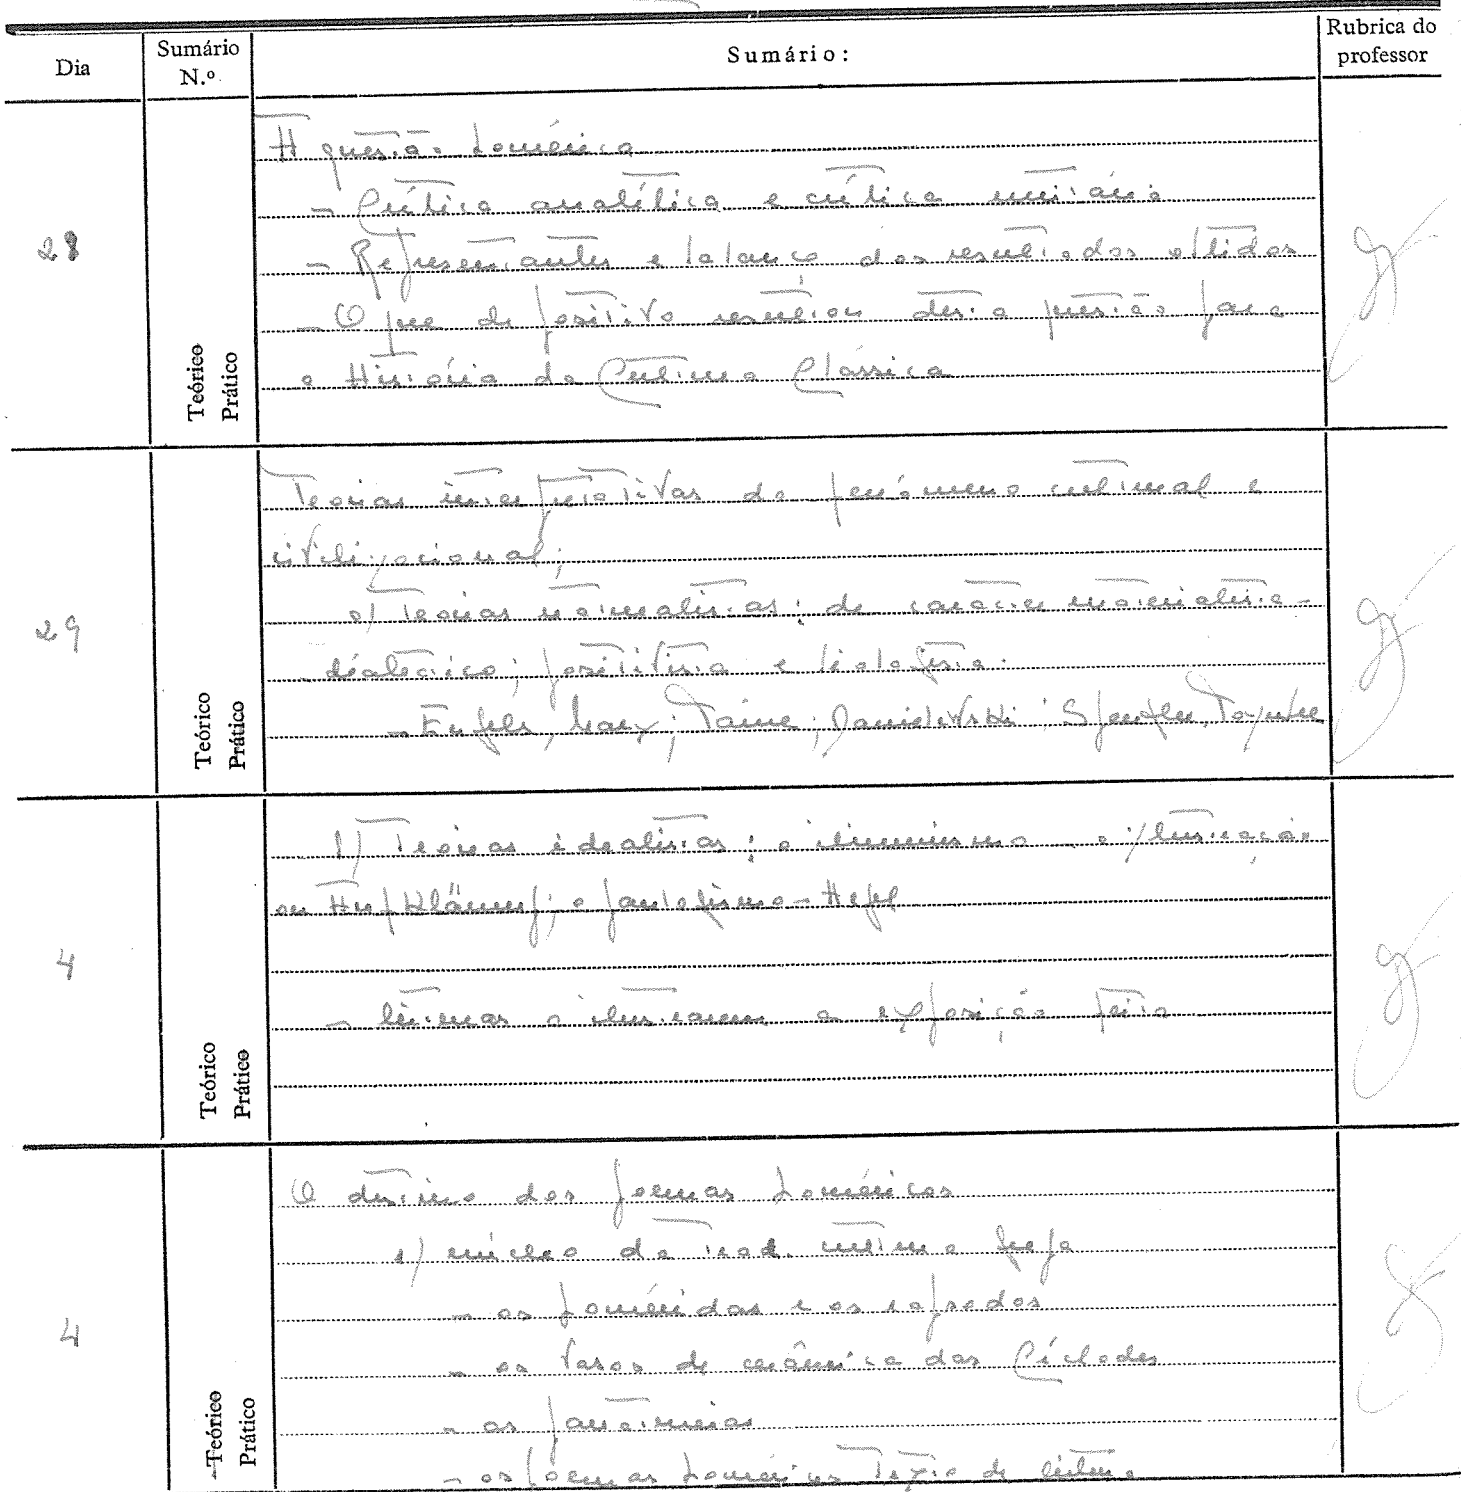 Dia
Sumário N.º
Sumário:
Rubrica do professor
28
Teórico
Prático
A questão homérica
- Crítica analítica e crítica unitária
- Representantes e balanço dos resultados obtidos
- O que de positivo resultou desta questão para
a História da Cultura Clássica
29
Teórico
Prático
Teorias interpretativas do fenómeno cultural e
civilizacional;
a) Teorias naturalistas: de carácter materialista-
-dialéctico; positivista e biologista.
- Engels, Marx; Taine; Danilevski; Spengler, Toynbee
4
Teórico
Prático
b) Teorias idealistas: o iluminismo - a ilustração
ou Aufklärung; o panlogismo - Hegel
- leituras a ilustrarem a exposição feita
4
Teórico
Prático
O destino dos poemas homéricos
1) núcleo da trad. cultural grega
- os homéridas e os rapsodos
- os vasos de cerâmica das Cíclades
- as panateneias
- os poemas homéricos texto de leitura